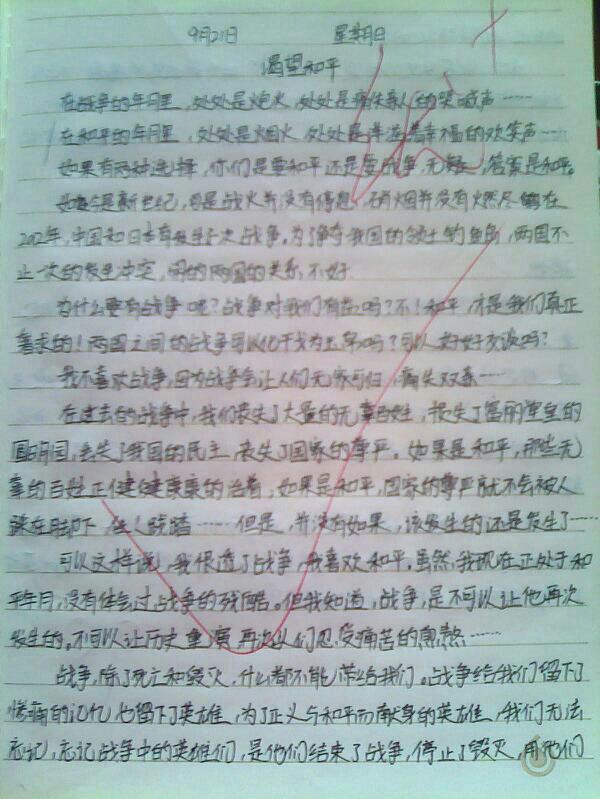 9月21日 星期日
渴望和平
在战争的年月里，处处是炮火，处处是痛失亲人的哭喊声……
在和平的年月里，处处是烟火，处处是洋溢着幸福的欢笑声……
如果有两种选择，你们是要和平还是要战争，无疑，答案是和平。
如今是新世纪，但是战火并没有停息，硝烟并没有燃尽。在
2012年，中国和日本有发生过一次战争。为了争夺我国的领土钓鱼岛，两国不
止一次的发生冲突，闹的两国的关系不好
为什么要有战争呢？战争对我们有益吗？不！和平，才是我们真正
需求的！两国之间的战争可以化干戈为玉帛吗？可以好好交谈吗？
我不喜欢战争，因为战争会让人们无家可归，痛失双亲……
在过去的战争中，我们丧失了大量的无辜百姓，损失了富丽堂皇的
圆明园，丢失了我国的民主，丧失了国家的尊严。如果是和平，那些无
辜的百姓正健健康康的活着，如果是和平，国家的尊严就不会被人
踩在脚下，任人践踏……但是，并没有如果，该发生的还是发生了……
可以这样说，我恨透了战争，我喜欢和平。虽然，我现在正处于和
平年月，没有体会过战争的残酷。但我知道，战争，是不可以让他再次
发生的。不可以让历史重演，再次让人们忍受痛苦的煎熬……
战争，除了死亡和毁灭，什么都不能带给我们。战争给我们留下了
惨痛的记忆，也留下了英雄，为了正义与和平而献身的英雄，我们无法
忘记，忘记战争中的英雄们，是他们结束了战争，停止了毁灭，用他们